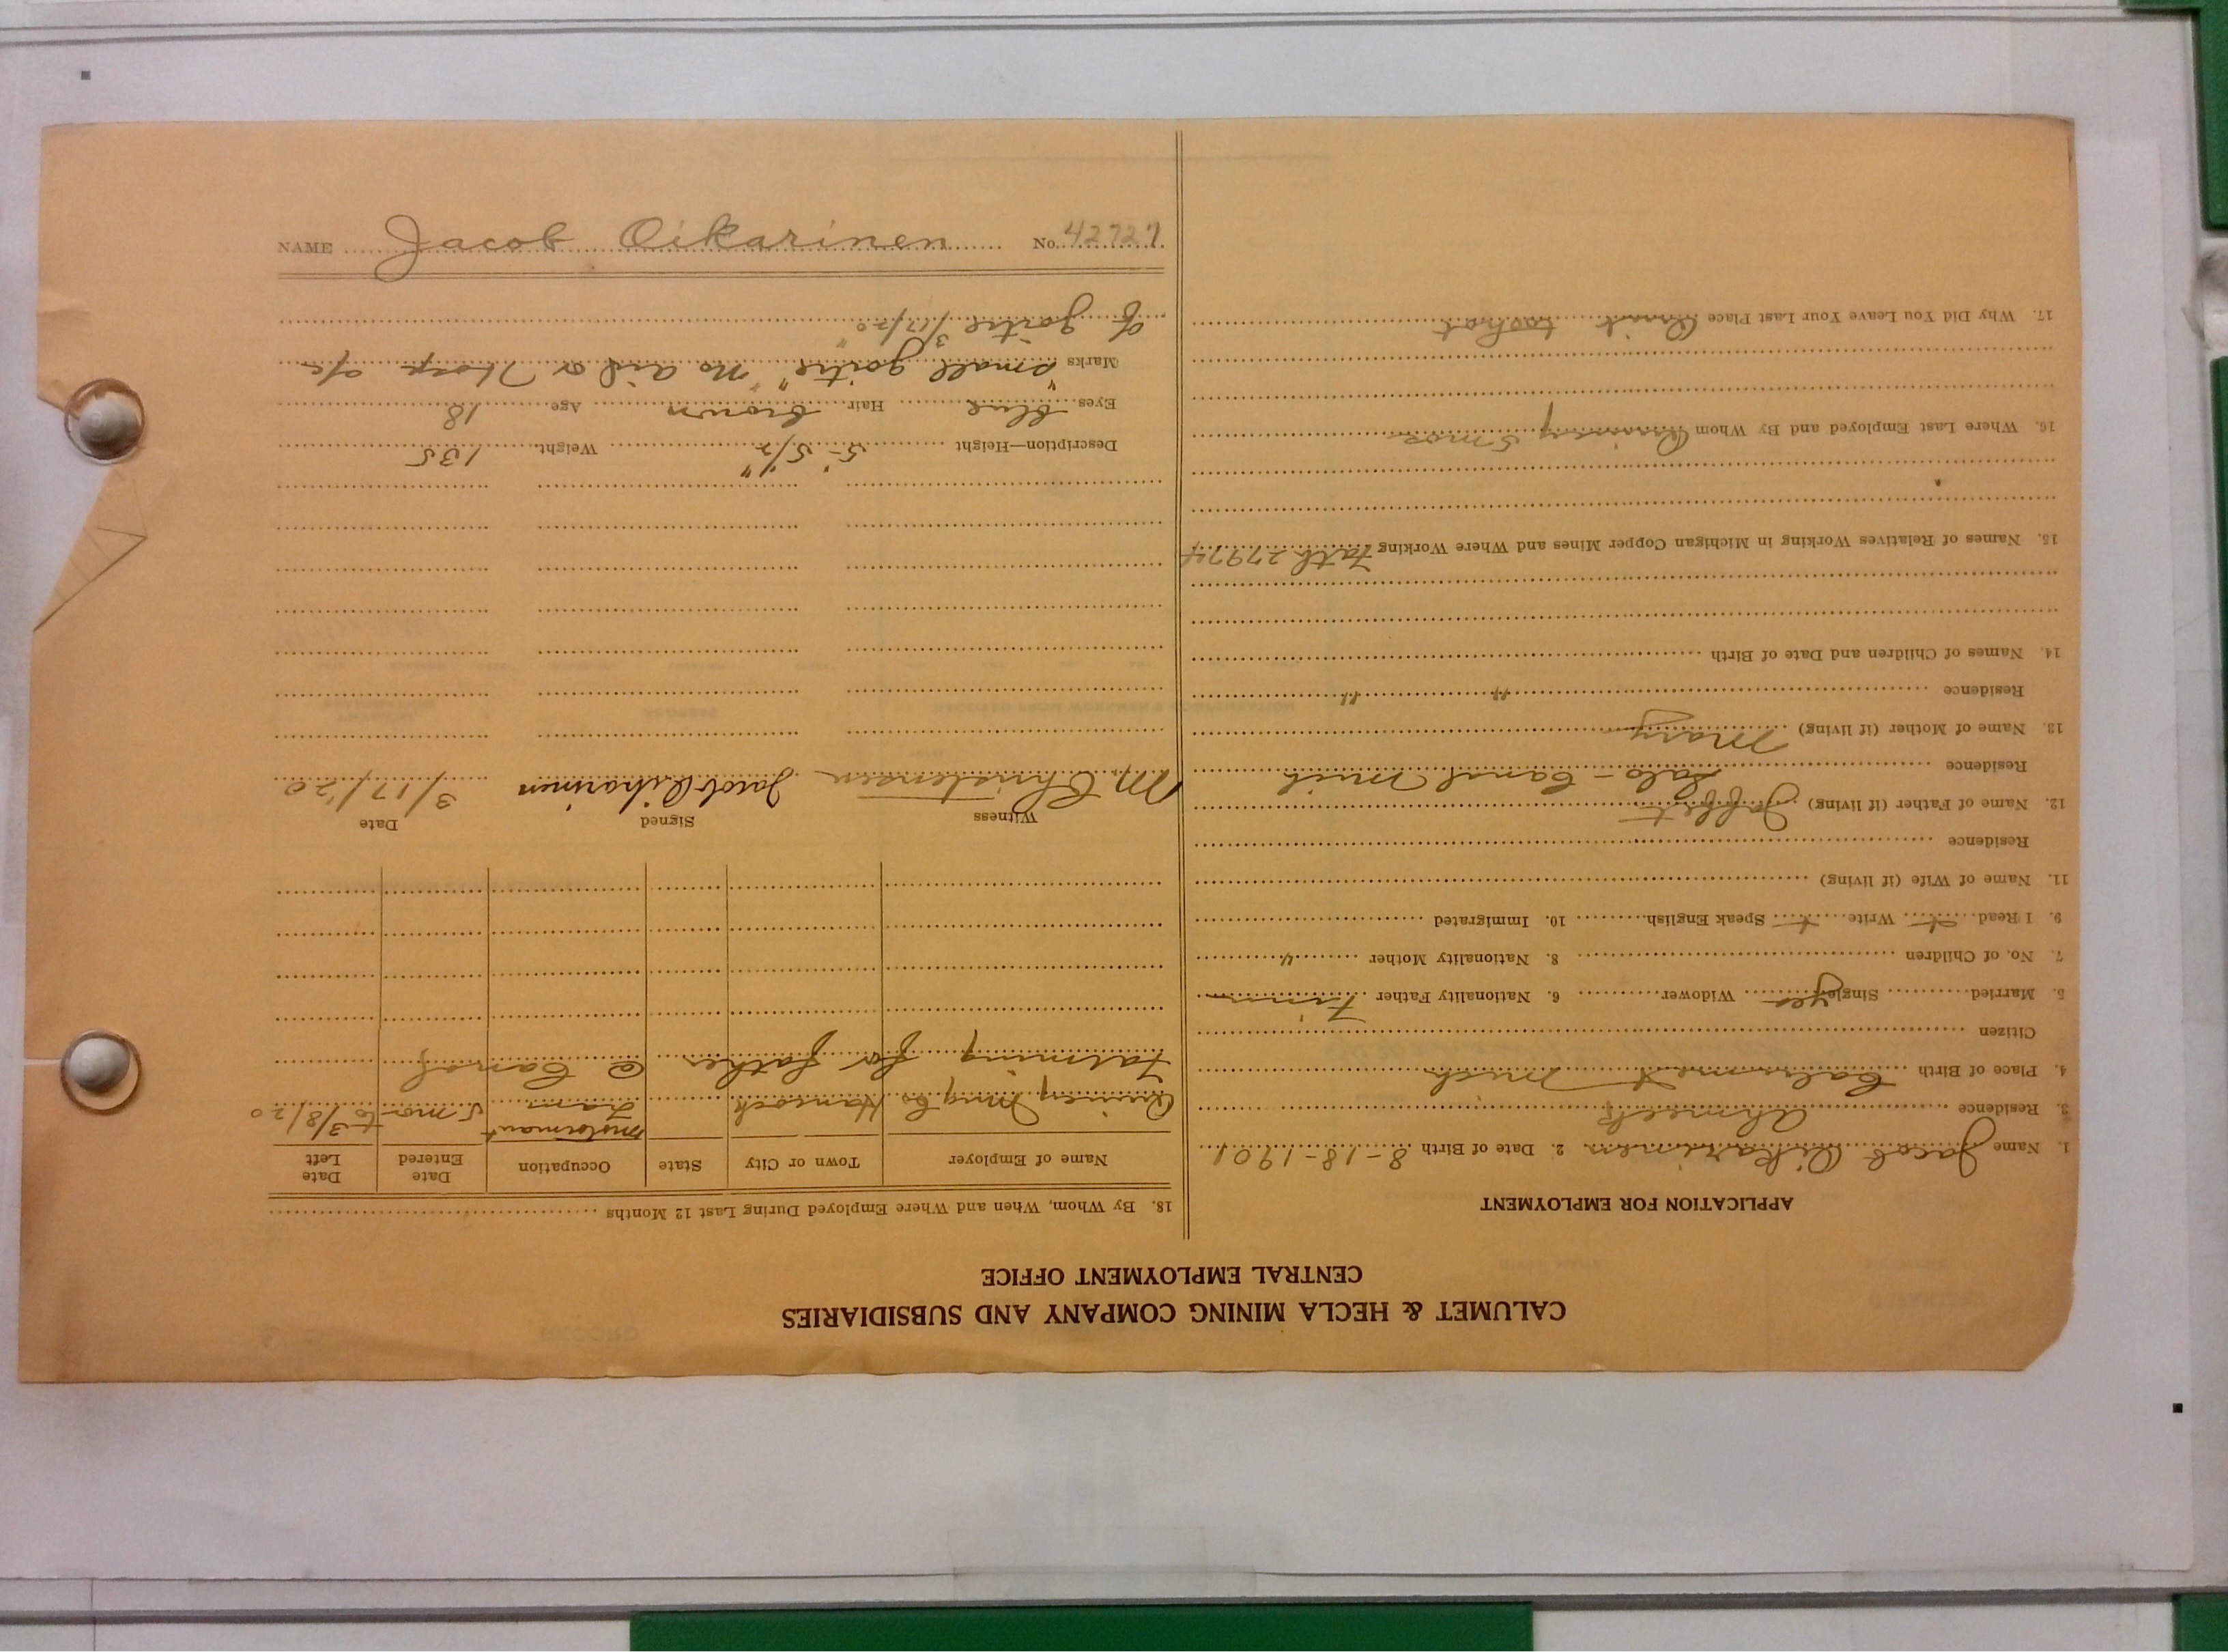 CALUMET & HECLA MINING COMPANY AND SUBSIDIARIES
CENTRAL EMPLOYMENT OFFICE
APPLICATION FOR EMPLOYMENT
1. Name Jacob Oikarinen 2. Date of Birth 8-18-1901
3. Residence Ahmeek
4. Place of Birth Calumet Mich
Citizen
5. Married Single yes Widower 6. Nationality Father Finn
7. No. of Children 8. Nationality Mother "
9. I Read Write Speak English 10. Immigrated
11. Name of Wife (if living)
Residence
12. Name of Father (if living)
Residence Salo - Canal Mich
13. Name of Mother (if living) Mary
Residence " "
14. Names of Children and Date of Birth
15. Names of Relatives Working in Michigan Copper Mines and Where Working Fath 27974
16. Where Last Employed and By Whom Quincy 5 mos
17. Why Did You Leave Your Last Place Quit too hot
18. By Whom, When and Where Employed During Last 12 Months
Name of Employer Town or City State Occupation Date Entered Date Left
Quincy Mng Co Hancock 5 mo to 3/8/20
Farming for father @ Canal
Witness Signed Date
M. Christensen Jacob Oikarinen 3/17/20
Description—Height 5'-5 1/2" Weight 135
Eyes blue Hair brown Age 18
Marks "small goitre" "No aid or Hosp a/c
of goitre" 3/17/20
NAME Jacob Oikarinen No. 42727